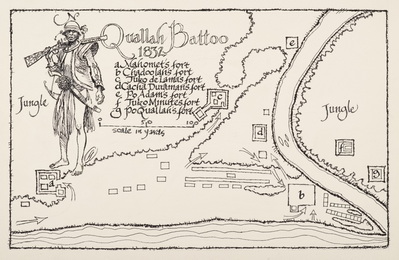 Jungle
Quallah Battoo
1832
a Mahomet's fort
b Chadoolahs fort
c Tuko de Lamas fort
d Cacha Duramans fort
e Po Adam's fort
f Tuko Minutes fort
g Po Quallahs fort
Jungle
0 50 100
scale in yards
Jungle
e
c
d
f
g
a
b